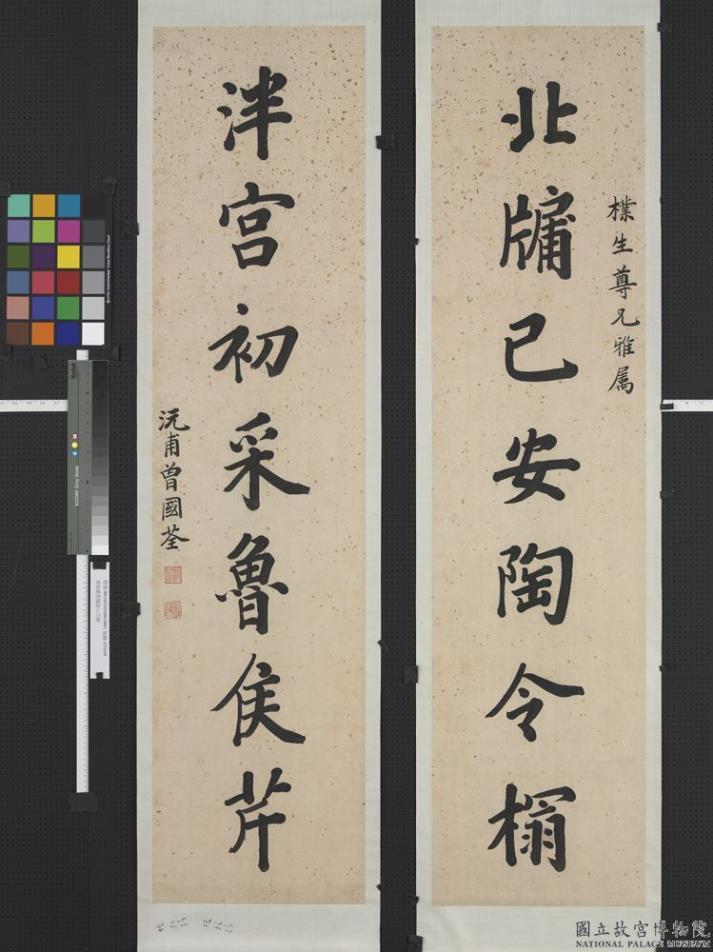 北牖已安陶令榻
樸生尊兄雅属
泮宮初采魯侯芹
沅甫曾國荃
國立故宮博物院
NATIONAL PALACE MUSEUM